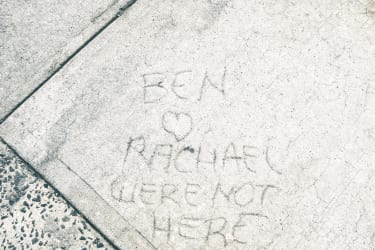 BEN
♡
RACHAEL
WERE NOT
HERE